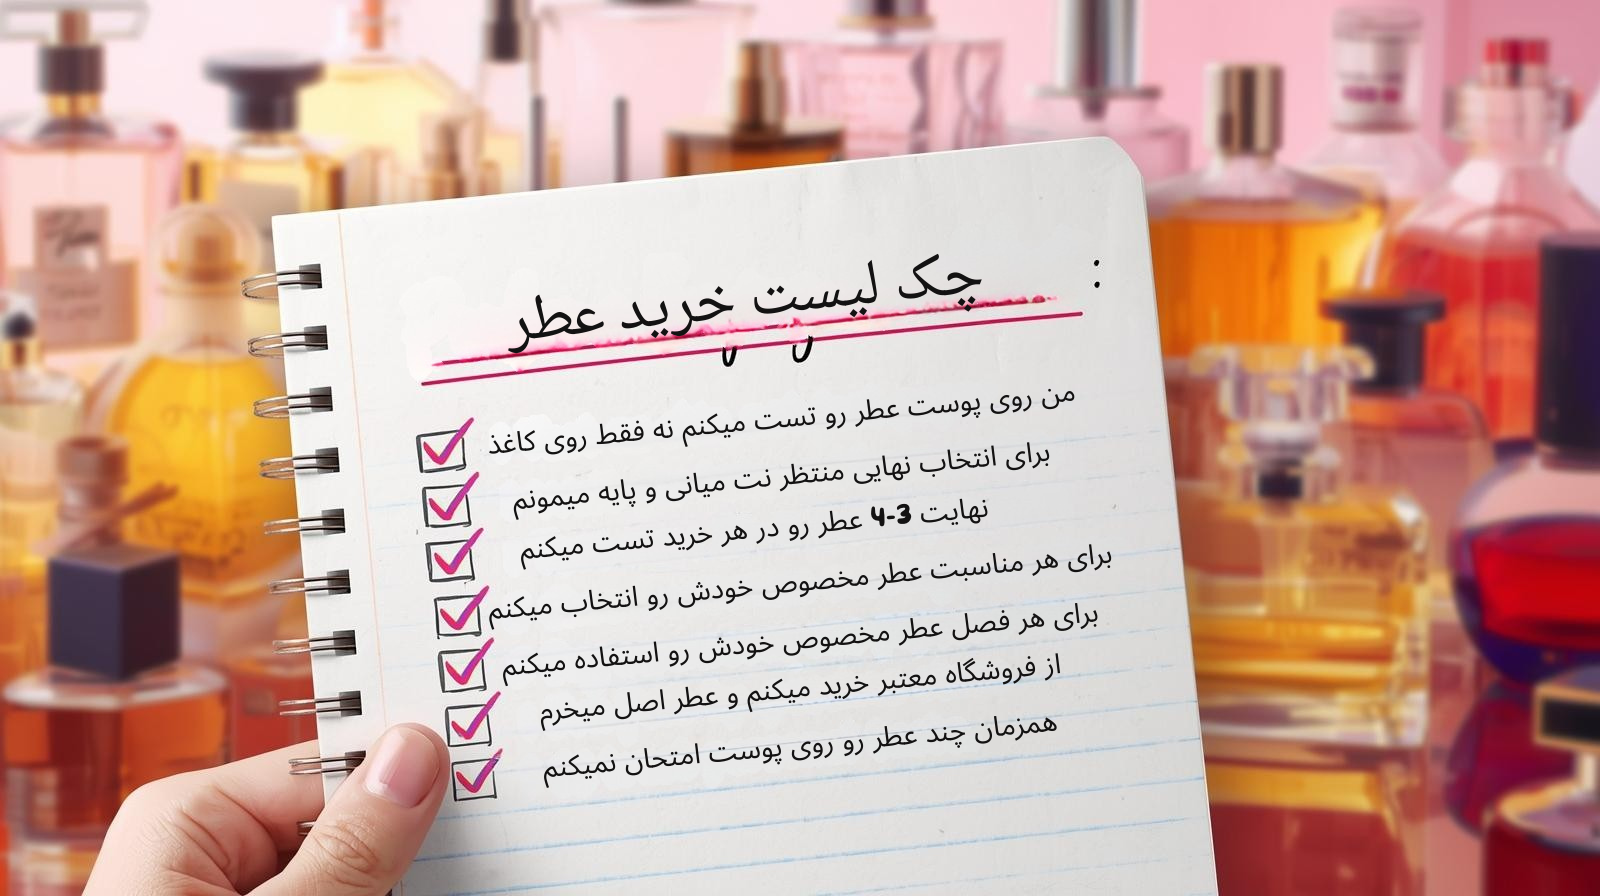 چک لیست خرید عطر :
من روی پوست عطر رو تست میکنم نه فقط روی کاغذ
برای انتخاب نهایی منتظر نت میانی و پایه میمونم
نهایت 3-4 عطر رو در هر خرید تست میکنم
برای هر مناسبت عطر مخصوص خودش رو انتخاب میکنم
برای هر فصل عطر مخصوص خودش رو استفاده میکنم
از فروشگاه معتبر خرید میکنم و عطر اصل میخرم
همزمان چند عطر رو روی پوست امتحان نمیکنم